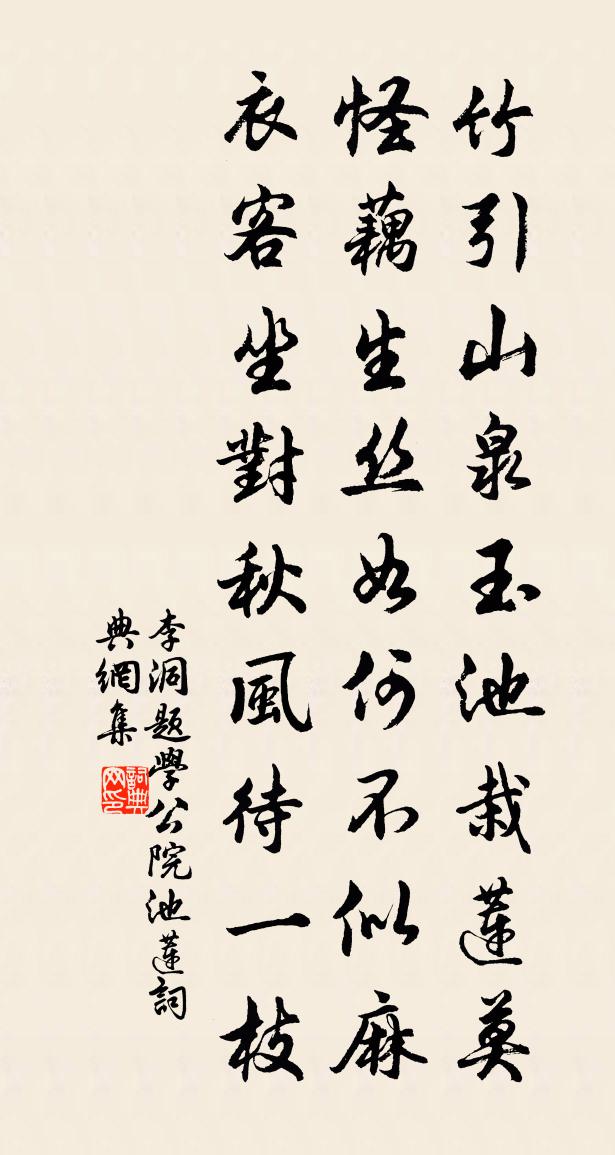 竹引山泉玉池栽蓮莫
怪藕生丝如何不似麻
衣客坐對秋風待一枝
李洞題學公院池蓮詞
典網集
詞典
网印